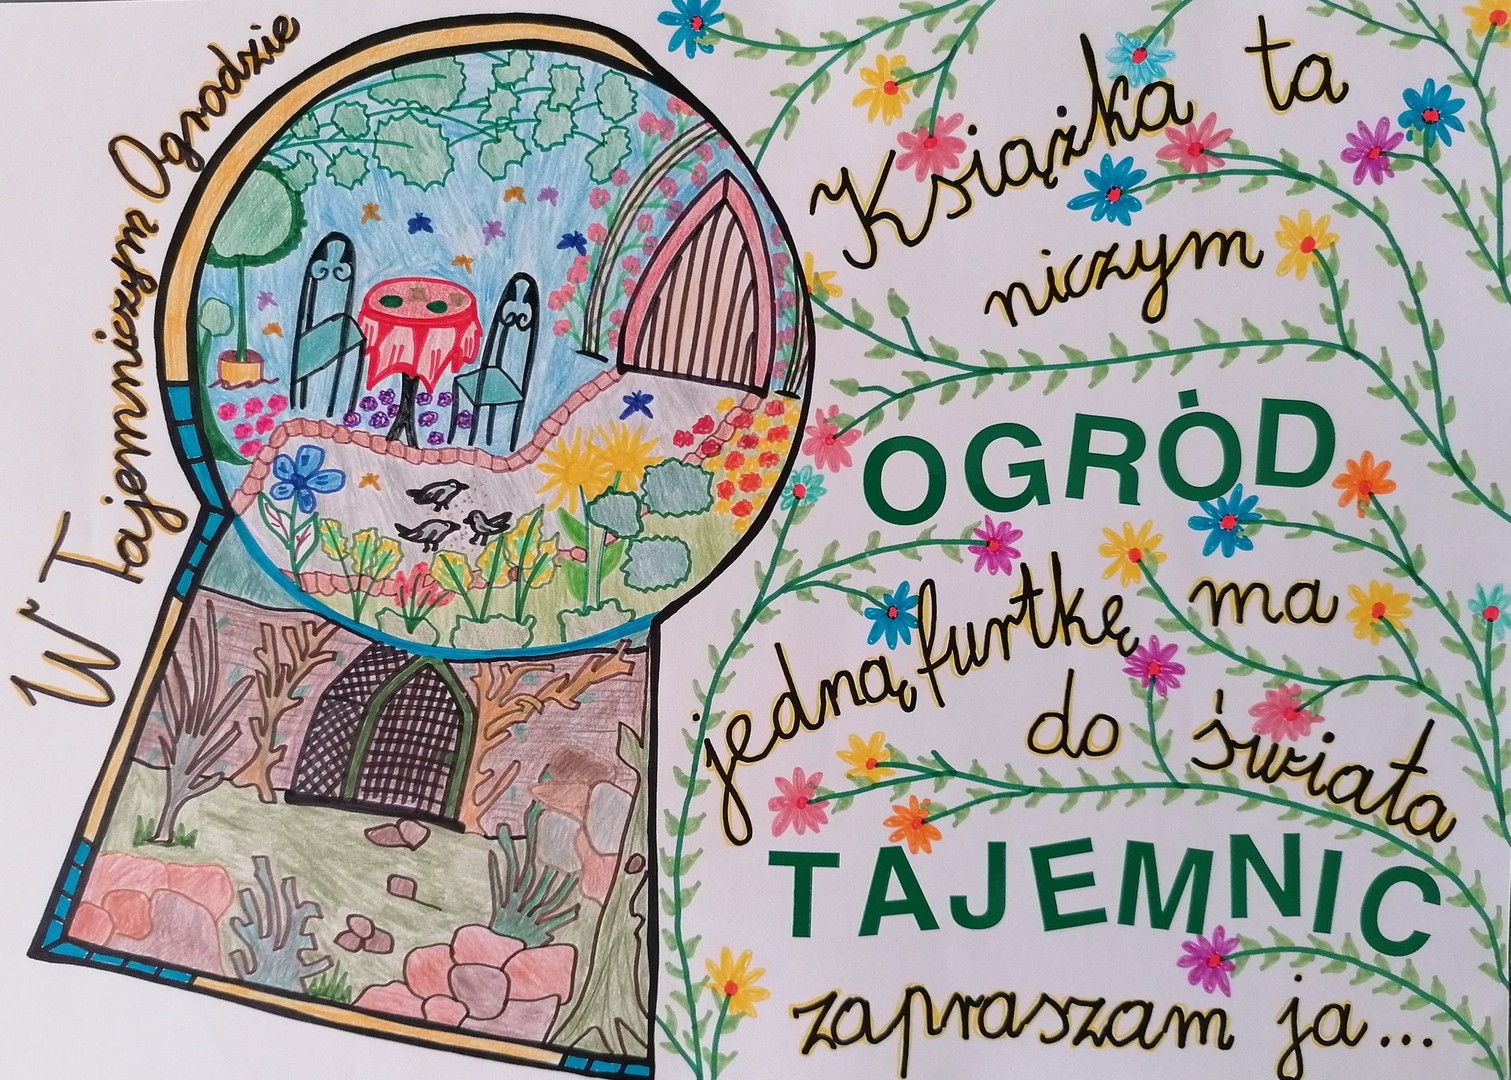 W Tajemniczym Ogrodzie
Książka ta
niczym
OGRÓD
jedną furtkę ma
do świata
TAJEMNIC
zapraszam ja...